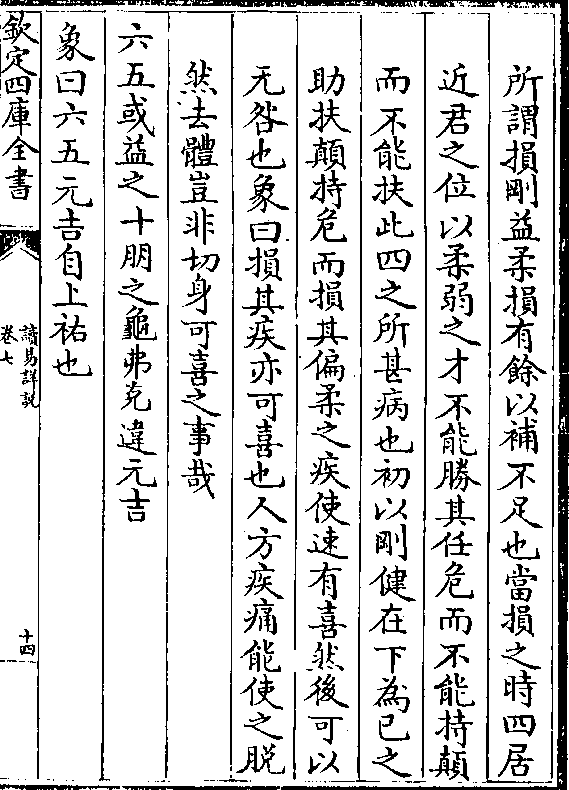 所謂損剛益柔損有餘以補不足也當損之時四居
近君之位以柔弱之才不能勝其任危而不能持顛
而不能扶此四之所甚病也初以剛健在下為已之
助扶顛持危而損其偏柔之疾使速有喜然後可以
无咎也象曰損其疾亦可喜也人方疾痛能使之脱
然去體豈非切身可喜之事哉
六五或益之十朋之龜弗克違元吉
象曰六五元吉自上祐也
欽定四庫全書
讀易詳説
卷七
十四